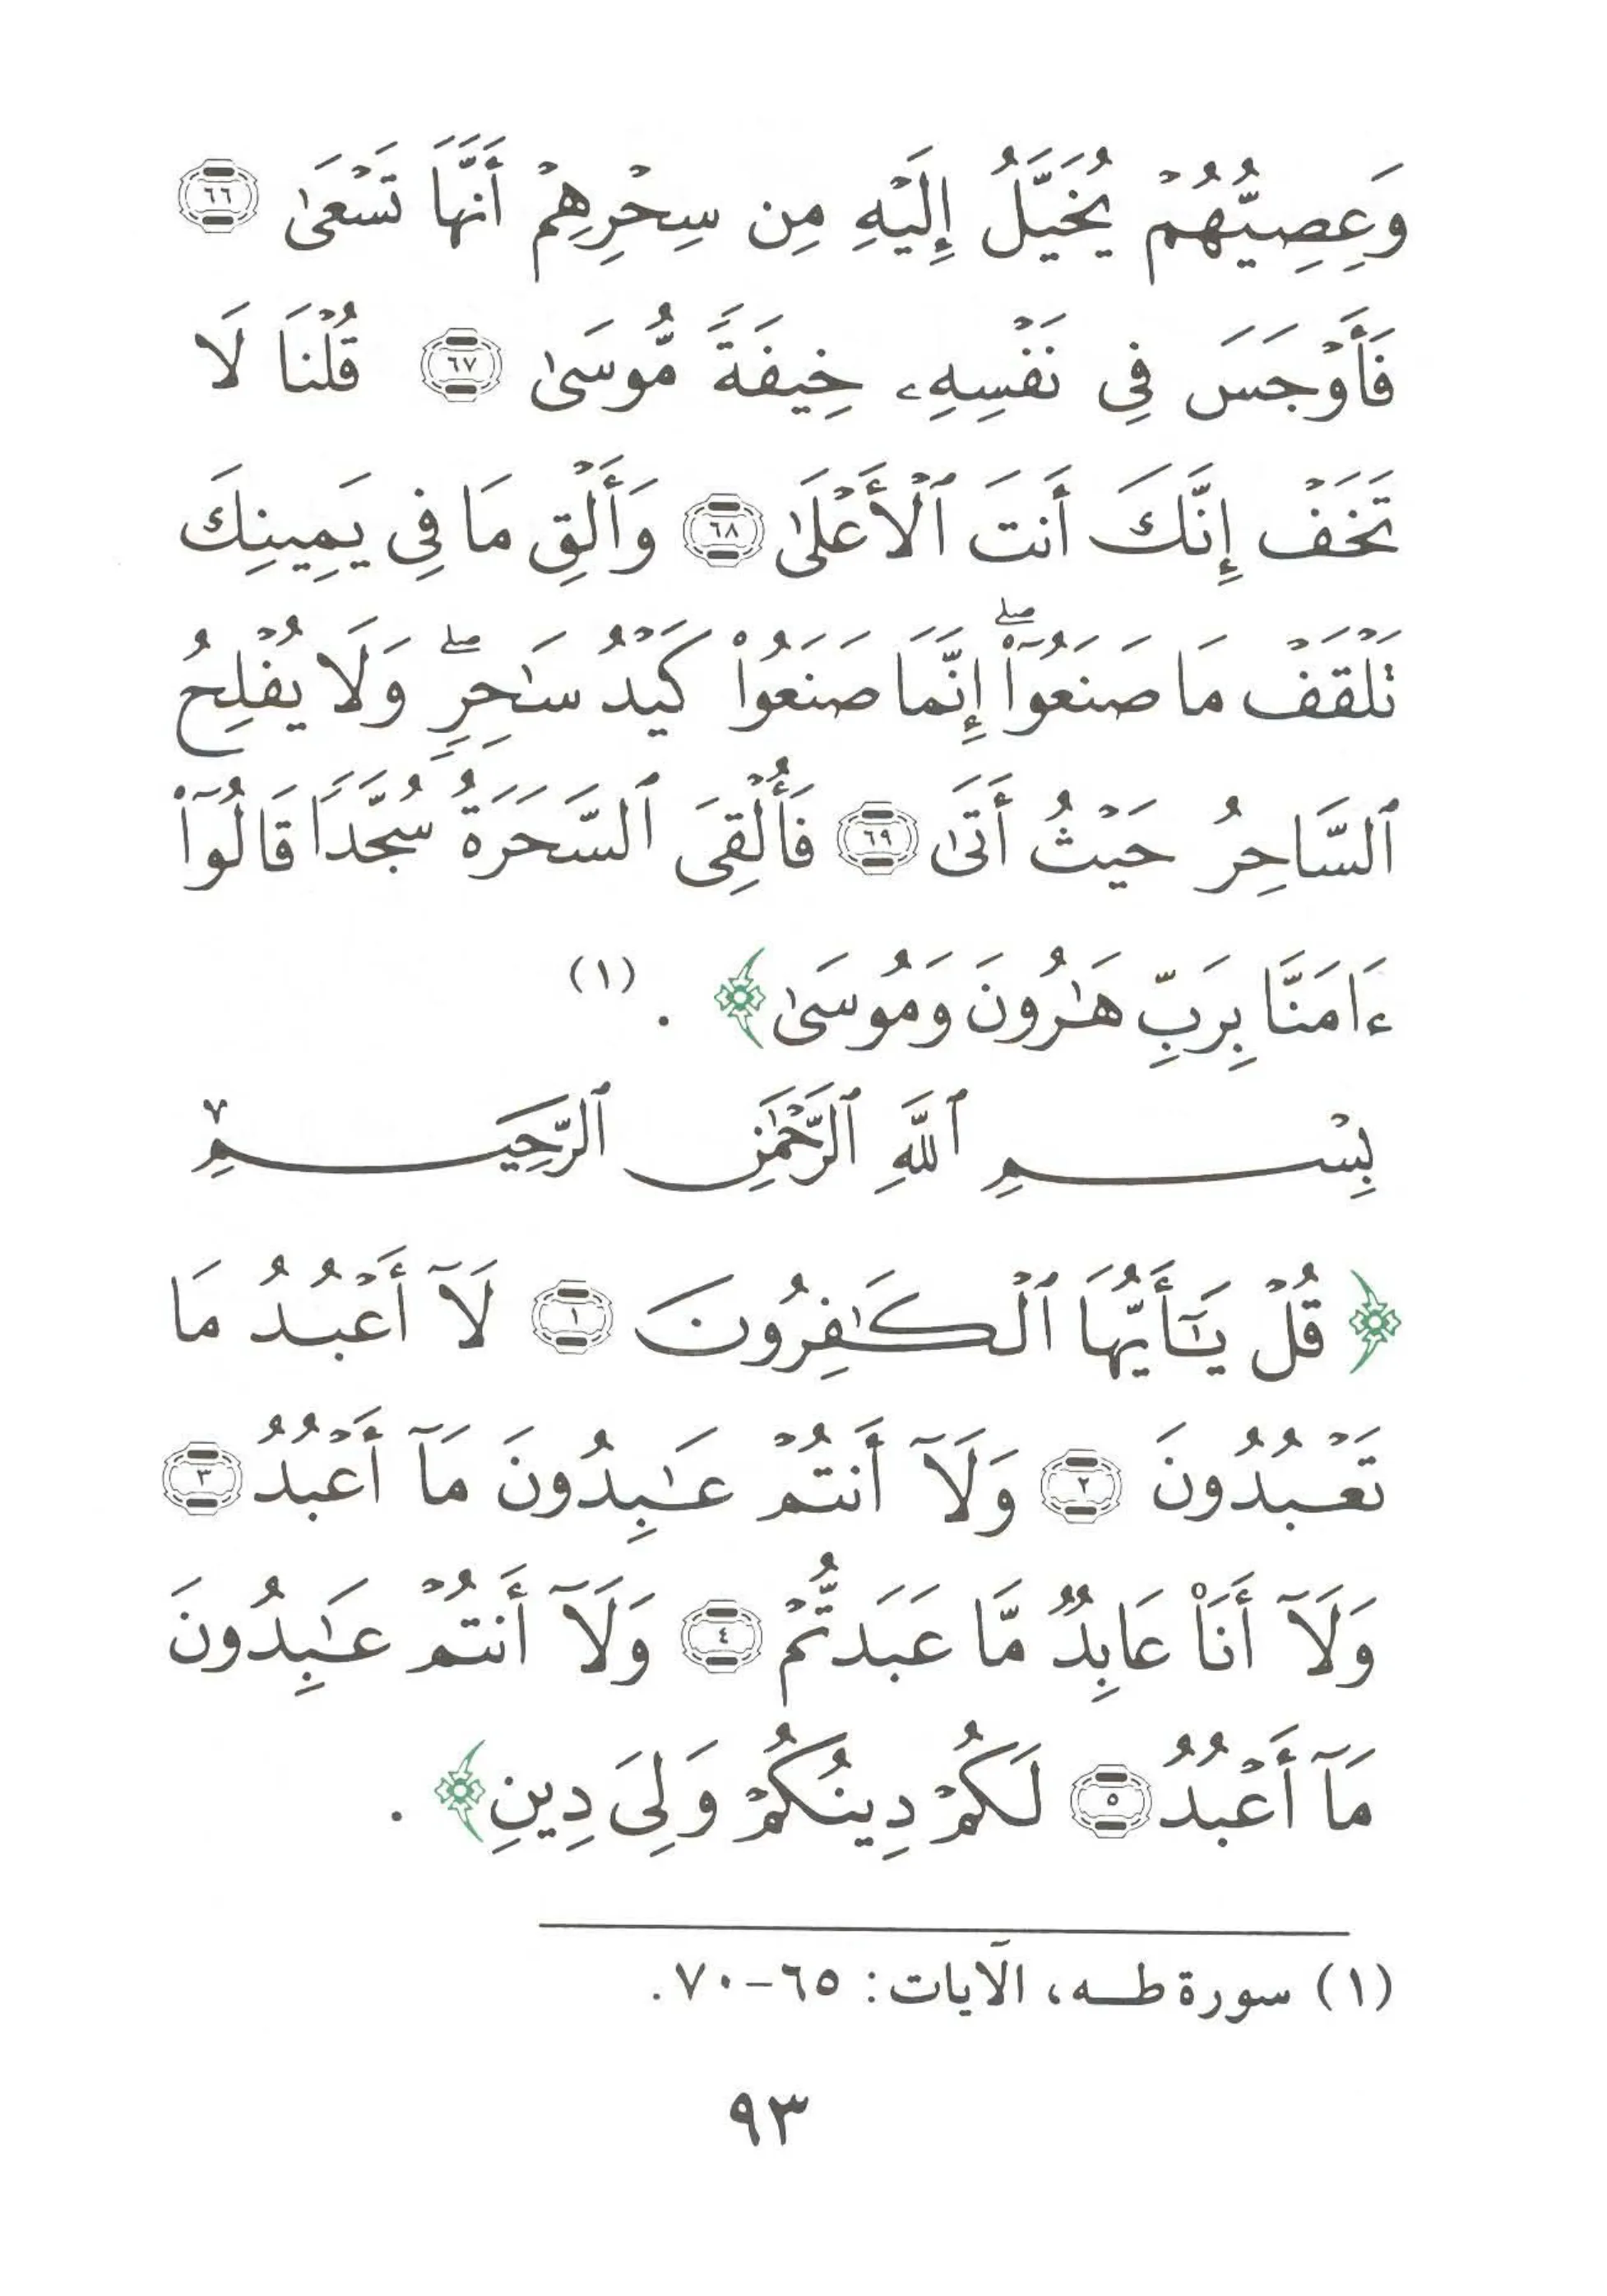 وَعِصِيُّهُمْ يُخَيَّلُ إِلَيْهِ مِن سِحْرِهِمْ أَنَّهَا تَسْعَىٰ ٦٦
فَأَوْجَسَ فِى نَفْسِهِۦ خِيفَةً مُّوسَىٰ ٦٧ قُلْنَا لَا
تَخَفْ إِنَّكَ أَنتَ ٱلْأَعْلَىٰ ٦٨ وَأَلْقِ مَا فِى يَمِينِكَ
تَلْقَفْ مَا صَنَعُوٓا۟ ۖ إِنَّمَا صَنَعُوا۟ كَيْدُ سَٰحِرٍ ۖ وَلَا يُفْلِحُ
ٱلسَّاحِرُ حَيْثُ أَتَىٰ ٦٩ فَأُلْقِىَ ٱلسَّحَرَةُ سُجَّدًا قَالُوٓا۟
ءَامَنَّا بِرَبِّ هَٰرُونَ وَمُوسَىٰ﴾ . (١)
بِسْمِ ٱللَّهِ ٱلرَّحْمَٰنِ ٱلرَّحِيمِ
﴿قُلْ يَٰٓأَيُّهَا ٱلْكَٰفِرُونَ ١ لَآ أَعْبُدُ مَا
تَعْبُدُونَ ٢ وَلَآ أَنتُمْ عَٰبِدُونَ مَآ أَعْبُدُ ٣
وَلَآ أَنَا۠ عَابِدٌ مَّا عَبَدتُّمْ ٤ وَلَآ أَنتُمْ عَٰبِدُونَ
مَآ أَعْبُدُ ٥ لَكُمْ دِينُكُمْ وَلِىَ دِينِ﴾ .
(١) سورة طـه، الآيات: ٦٥-٧٠.
٩٣